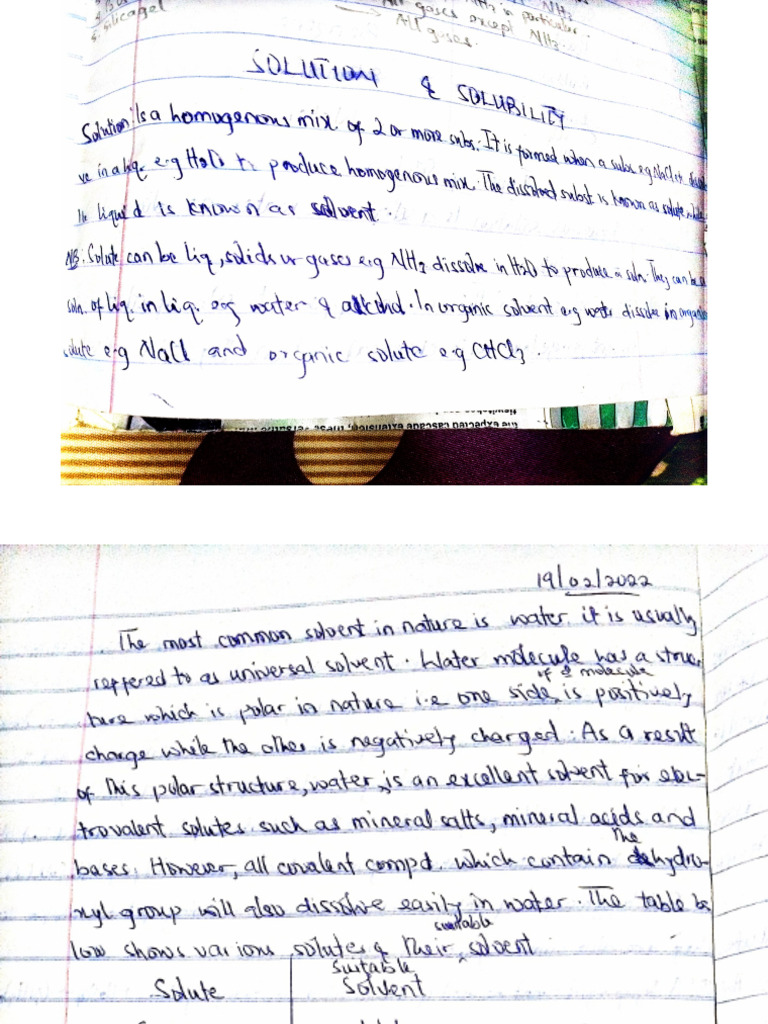 silicagel
All gases except NH3
All gases.
SOLUTION & SOLUBILITY
Solution: Is a homogenous mix of 2 or more subs. It is formed when a subs e.g NaCl
ve in a liq. e.g H2O to produce homogenous mix. The dissolved subst is known as solute while
the liquid is known as solvent.
NB: Solute can be liq, solids or gases e.g NH3 dissolve in H2O to produce a soln. They can be a
soln. of liq. in liq. e.g water & alkohol. In organic solvent e.g water dissolve in organic
solute e.g NaCl and organic solute e.g CHCl3.
19/02/2022
The most common solvent in nature is water. it is usually
reffered to as universal solvent. Water molecule has a struc-
ture which is polar in nature i.e one side of a molecule is positively
charge while the other is negatively charged. As a result
of this polar structure, water, is an excellent solvent for elec-
trovalent solutes such as mineral salts, mineral acids and
bases. However, all covalent compd. which contain The hydro-
xyl group will also dissolve easily in water. The table be
low shows various solutes & their suitable solvent
Solute suitable Solvent